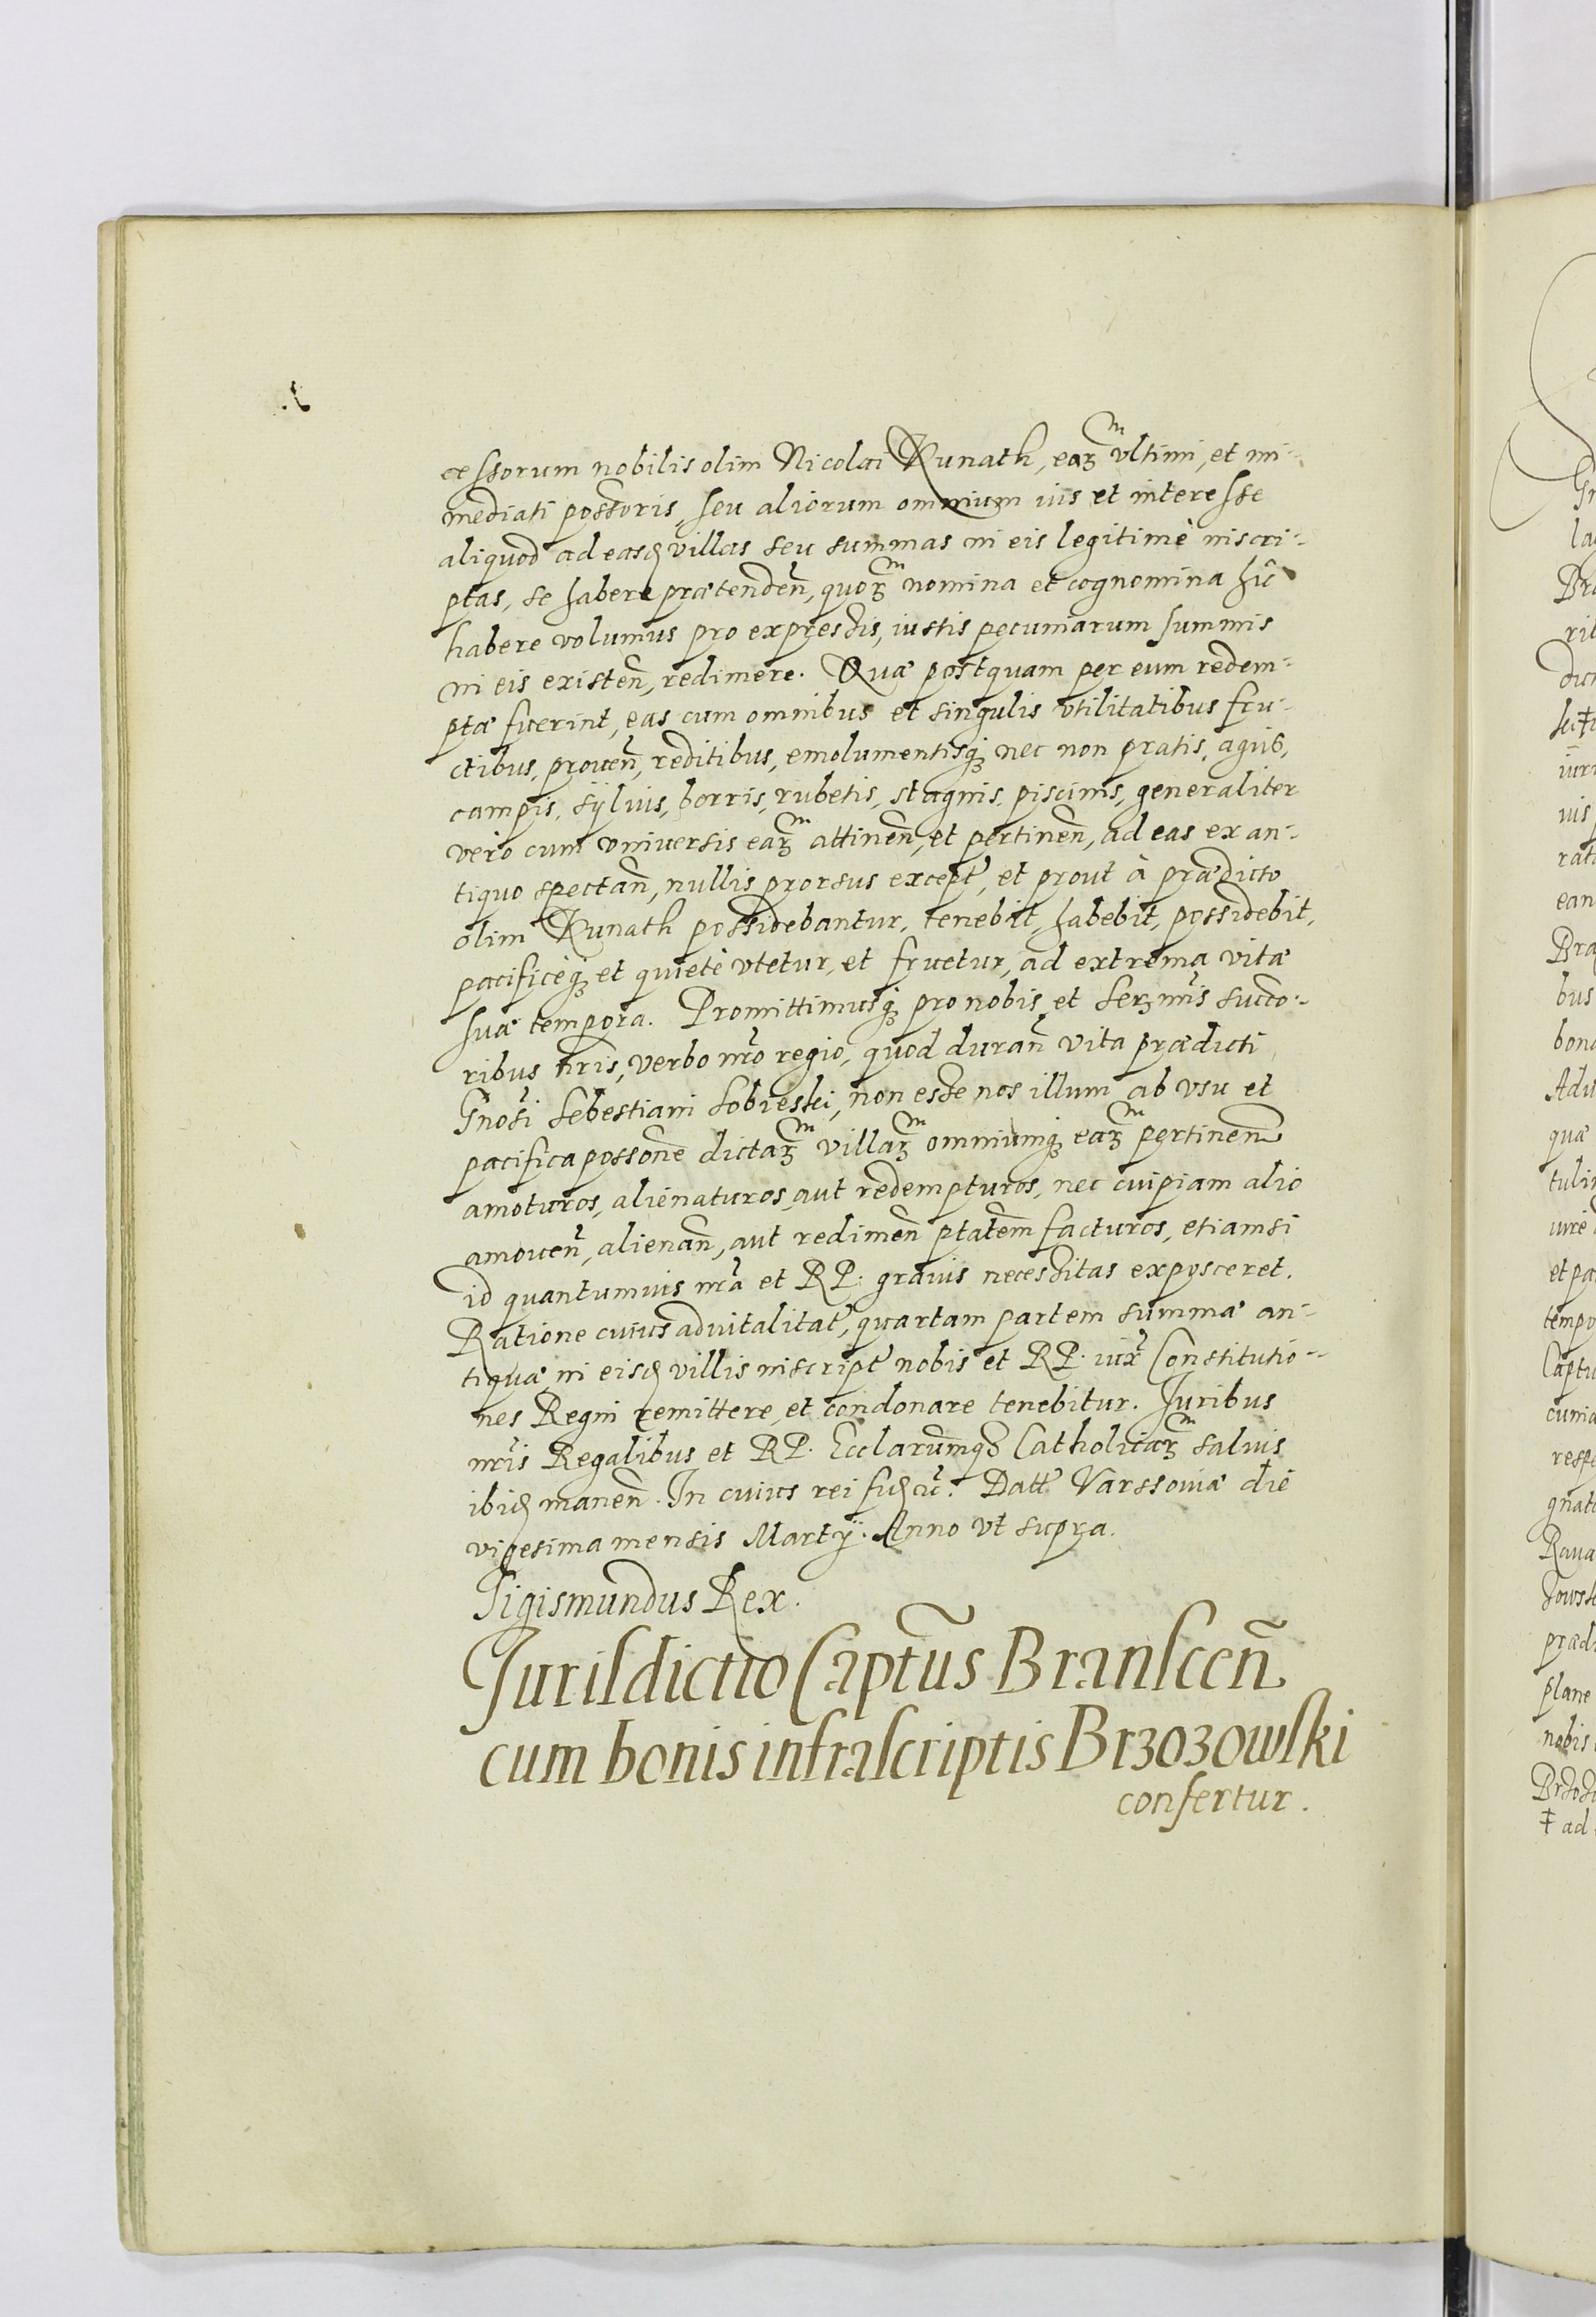 cessorum nobilis olim Nicolai Kunath, earꝫ ultimi, et im-
mediati possoris, seu aliorum omnium ius et interesse
aliquod ad easdꝫ villas seu summas in eis legitimè inscri-
ptas, se habere prætendeñ, quorꝫ nomina et cognomina hîc
habere volumus pro expressis, iustis pecuniarum summis
in eis existeñ, redimere. Quæ postquam per eum redem-
ptæ fuerint, eas cum omnibus et singulis vtilitatibus fru-
ctibus, proueñ, reditibus, emolumentisqꝫ nec non pratis, agris,
campis, syluis, borris, rubetis, stagnis, piscinis, generaliter
vero cum vniuersis earꝫ attineñ, et pertineñ, ad eas ex an-
tiquo spectañ, nullis prorsus except, et prout à prædicto
olim Kunath possidebantur, tenebit, habebit, possidebit,
pacificèqꝫ et quietè vtetur, et fruetur, ad extrema vitæ
suæ tempora. Promittimusqꝫ pro nobis et Serꝫmis succo-
ribus nris, verbo nro regio, quod durañ vita prædicti
Gnosi Sebestiani Sobieski, non esse nos illum ab vsu et
pacifica possone dictarꝫ villarꝫ omniumqꝫ earꝫ pertineñ
amoturos, alienaturos, aut redempturos, nec cuipiam alio
amoueñ, alienañ, aut redimeñ ptatem facturos, etiamsi
id quantumuis nra et RP. grauis necessitas exposceret.
Ratione cuius aduitalitat, quartam partem summæ an-
tiquæ in eisdꝫ villis inscript nobis et RP. iux Constitutio-
nes Regni remittere et condonare tenebitur. Iuribus
nris Regalibus et RP. Ecclarumqꝫ Catholicarꝫ saluis
ibidꝫ maneñ. In cuius rei fidꝫ cu. Datt Varssouiæ die
vigesima mensis Martij. Anno vt supra.
Sigismundus Rex.
Iurisdictio Captus Bransceñ
cum bonis infrascriptis Brzozowski
confertur.